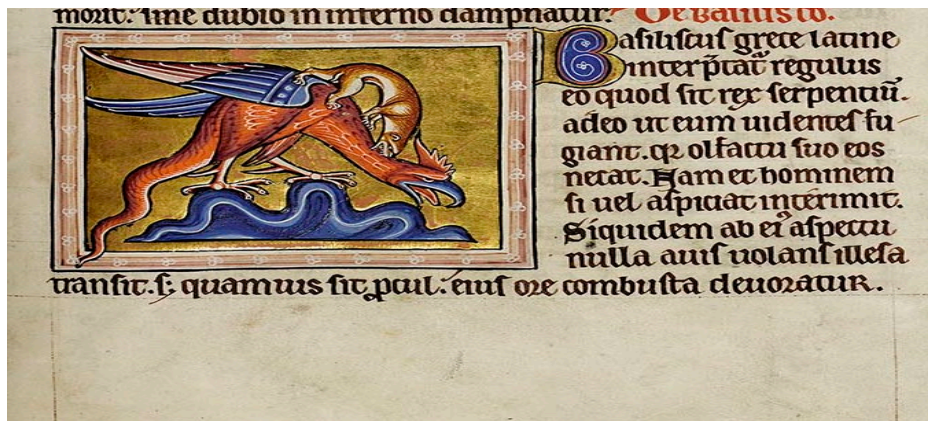 morit. sine dubio in inferno dampnatur. De basilisco.
Basiliscus grece latine
interp̄tat̄ regulus
eo quod sit rex serpentiū.
adeo ut eum uidentes fu
giant. qꝛ olfactu suo eos
necat. Nam et hominem
si uel aspiciat interimit.
Siquidem ab ei᷒ aspectu
nulla auis uolans illesa
transit. sꝫ quamuis sit ꝓcul. eius ore combusta deuoratur.